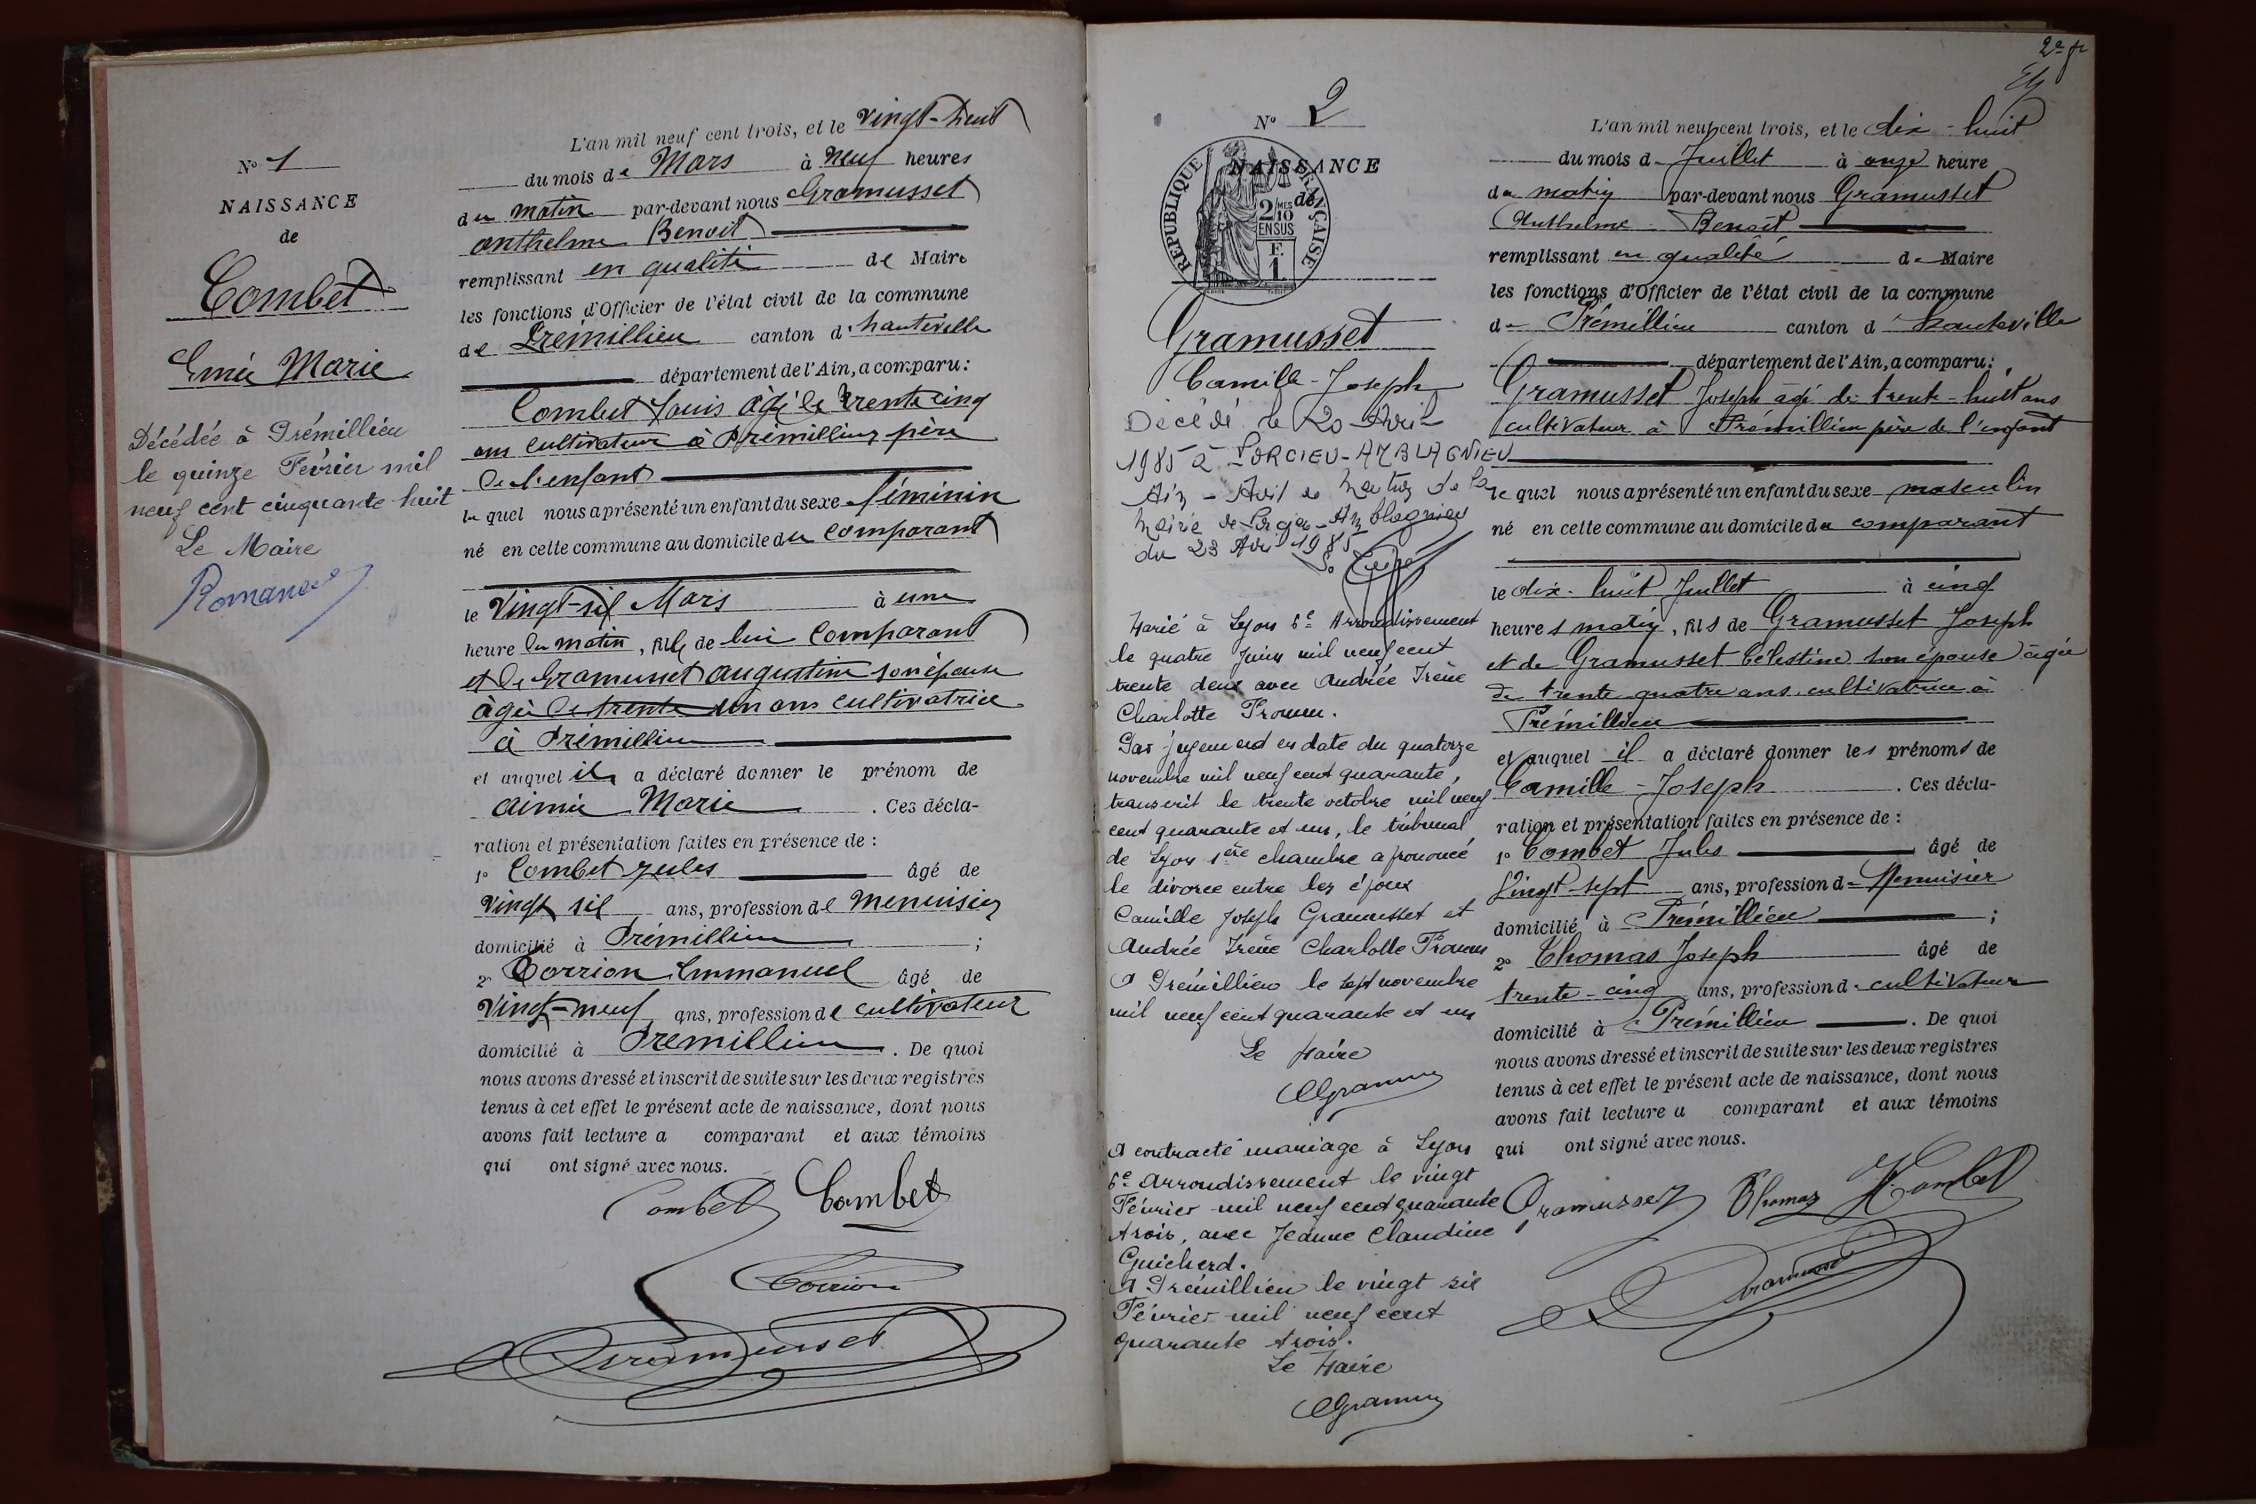 N° 1
NAISSANCE
de
Combet
Emée Marie
Décédée à Prémillieu
le quinze Février mil
neuf cent cinquante huit
Le Maire
L'an mil neuf cent trois, et le vingt-huit
du mois de Mars à neuf heures
du matin par-devant nous Gramusset
anthelme Benoit
remplissant en qualité de Maire
les fonctions d'Officier de l'état civil de la commune
de Prémillieu canton d'hauteville
département de l'Ain, a comparu :
Combet Louis âgé de trente cinq
ans cultivateur à Prémillieu père
de l'enfant
le quel nous a présenté un enfant du sexe féminin
né en cette commune au domicile du comparant
le vingt-six Mars à une
heure du matin, fille de lui comparant
et de Gramusset augustine son épouse
âgée de trente un ans cultivatrice
à Prémillieu
et auquel il a déclaré donner le prénom de
aimée Marie . Ces décla-
ration et présentation faites en présence de :
1° Combet Jules âgé de
vingt six ans, profession de menuisier
domicilié à Prémillieu ;
2° Corrion Emmanuel âgé de
vingt-neuf ans, profession de cultivateur
domicilié à Prémillieu . De quoi
nous avons dressé et inscrit de suite sur les deux registres
tenus à cet effet le présent acte de naissance, dont nous
avons fait lecture a comparant et aux témoins
qui ont signé avec nous.
Combet Combet
Corrion
Gramusset
N° 2
NAISSANCE
de
RÉPUBLIQUE FRANÇAISE
2/10 MES
EN SUS
F.
1
Gramusset
Camille-Joseph
Décédé le 20 Avril
1985 à LORCIEU-AMBLAGNIEU
Ain - Avis de mention de la
Mairie de
du 23 Avril 1985
Marié à Lyon 6e Arrondissement
le quatre Juin mil neuf cent
trente deux avec Andrée Irène
Charlotte
Par jugement en date du quatorze
novembre mil neuf cent quarante,
transcrit le trente octobre mil neuf
cent quarante et un, le tribunal
de Lyon 1ère chambre a prononcé
le divorce entre les époux
Camille Joseph Gramusset et
Andrée Irène Charlotte
A Prémillieu le sept novembre
mil neuf cent quarante et un
Le Maire
A contracté mariage à Lyon
6e Arrondissement le vingt
Février mil neuf cent quarante
trois, avec Jeanne Claudine
Guicherd.
A Prémillieu le vingt six
Février mil neuf cent
quarante trois.
Le Maire
2e f
L'an mil neuf cent trois, et le dix-huit
du mois d Juillet à onze heure
du matin par-devant nous Gramusset
Anthelme Benoit
remplissant en qualité de Maire
les fonctions d'Officier de l'état civil de la commune
de Prémillieu canton d'hauteville
département de l'Ain, a comparu :
Gramusset Joseph âgé de trente-huit ans
cultivateur à Prémillieu père de l'enfant
le quel nous a présenté un enfant du sexe masculin
né en cette commune au domicile du comparant
le dix-huit Juillet à cinq
heures matin, fils de Gramusset Joseph
et de Gramusset Célestine son épouse âgée
de trente quatre ans cultivatrice à
Prémillieu
et auquel il a déclaré donner les prénoms de
Camille-Joseph . Ces décla-
ration et présentation faites en présence de :
1° Combet Jules âgé de
vingt-sept ans, profession de Menuisier
domicilié à Prémillieu ;
2° Thomas Joseph âgé de
trente-cinq ans, profession de cultivateur
domicilié à Prémillieu . De quoi
nous avons dressé et inscrit de suite sur les deux registres
tenus à cet effet le présent acte de naissance, dont nous
avons fait lecture a comparant et aux témoins
qui ont signé avec nous.
Gramusset Thomas J. Combet
Gramusset